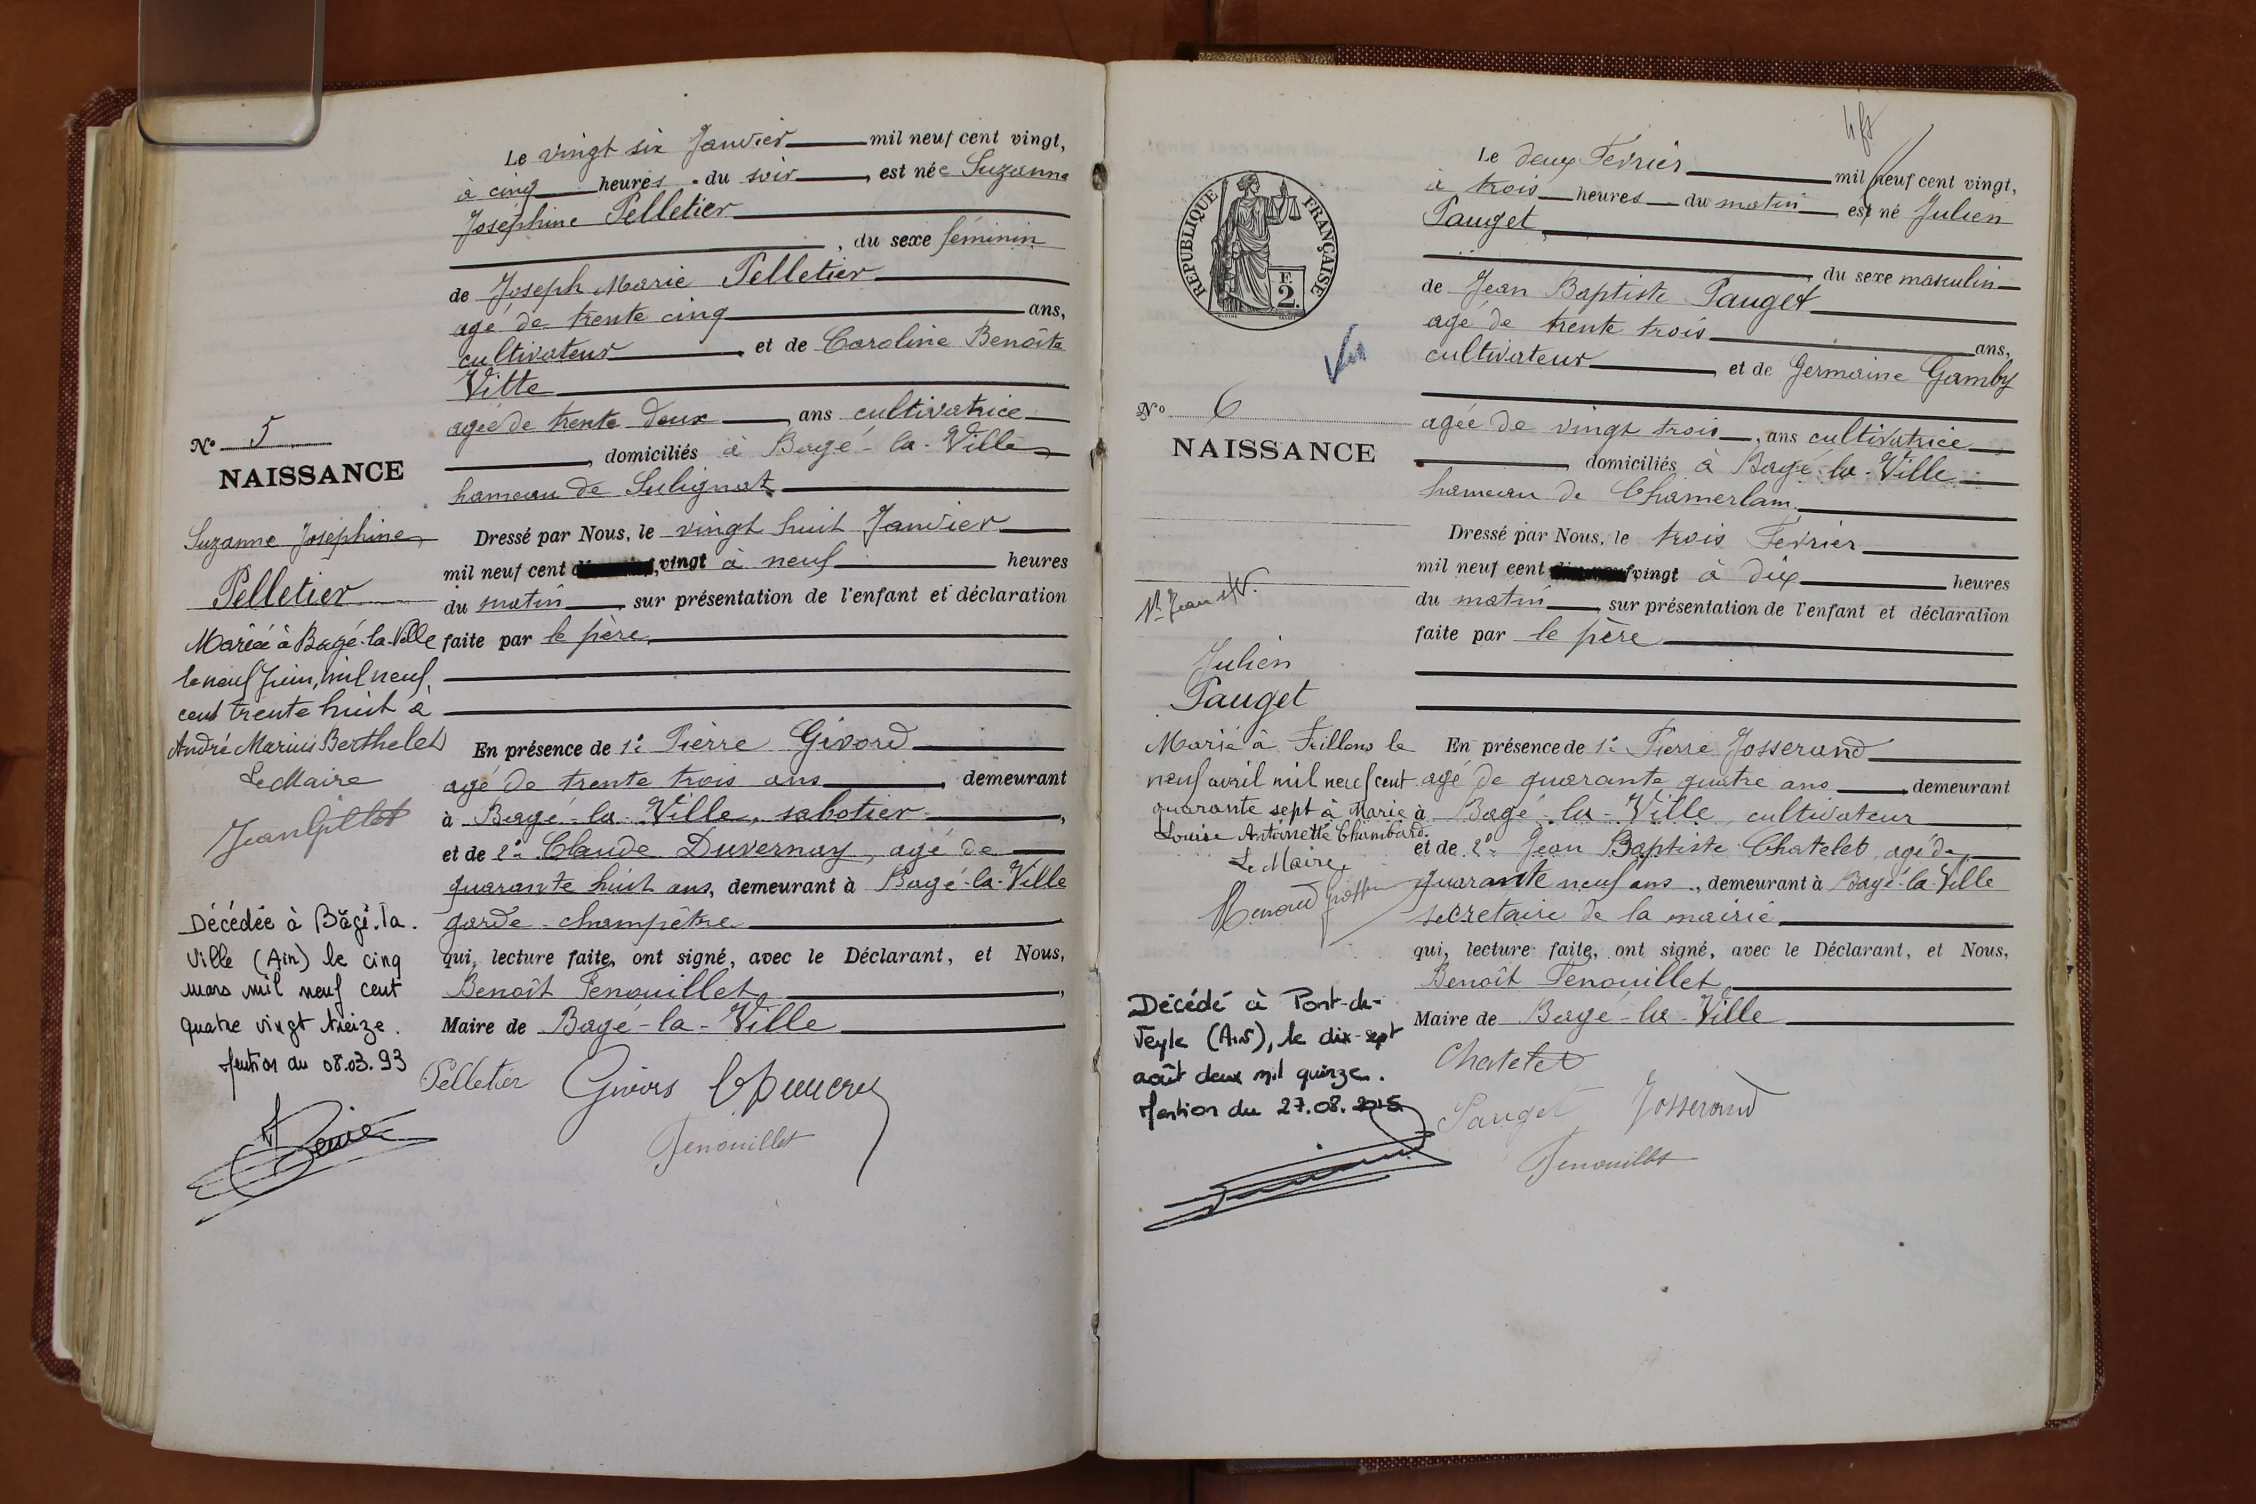 Le vingt six Janvier mil neuf cent vingt,
à cinq heures du soir, est née Suzanne
Joséphine Pelletier
, du sexe féminin
de Joseph Marie Pelletier
agé de trente cinq ans,
cultivateur, et de Caroline Benoîte
Vitte
agée de trente deux, ans cultivatrice
, domiciliés à Bagé-la-Ville
hameau de Sulignat
N° 5
NAISSANCE
Suzanne Joséphine
Pelletier
Mariée à Bagé-la-Ville
le neuf Juin, mil neuf
cent trente huit à
André Marius Berthelet
Le Maire
Jean Gillet
Décédée à Bâgé-la-
Ville (Ain) le cinq
mars mil neuf cent
quatre vingt treize.
Mention du 08.03.93
Dressé par Nous, le vingt huit Janvier
mil neuf cent vingt à neuf heures
du matin, sur présentation de l'enfant et déclaration
faite par le père,
En présence de 1° Pierre Givord
agé de trente trois ans, demeurant
à Bagé-la-Ville, sabotier,
et de 2° Claude Duvernay, agé de
quarante huit ans, demeurant à Bagé-la-Ville
garde-champêtre
qui, lecture faite, ont signé, avec le Déclarant, et Nous,
Benoît Fenouillet,
Maire de Bagé-la-Ville
Pelletier Givors
Fenouillet
RÉPUBLIQUE FRANÇAISE
F.
2.
Le deux Février mil neuf cent vingt,
à trois heures du matin, est né Julien
Pauget,
, du sexe masculin
de Jean Baptiste Pauget
agé de trente trois ans,
cultivateur, et de Germaine Gamby
agée de vingt trois, ans cultivatrice
, domiciliés à Bagé-la-Ville
hameau de Chamerlan
Vu
N° 6
NAISSANCE
Julien
Pauget
Marié à Feillens le
neuf avril mil neuf cent
quarante sept à Marie
Louise Antoinette Chambard.
Le Maire,
Décédé à Pont-de-
Veyle (Ain), le dix-sept
août deux mil quinze.
Mention du 27.08.2015
Dressé par Nous, le trois Février
mil neuf cent vingt à dix heures
du matin, sur présentation de l'enfant et déclaration
faite par le père
En présence de 1° Pierre Josserand
agé de quarante quatre ans, demeurant
à Bagé-la-Ville, cultivateur
et de 2° Jean Baptiste Chatelet, agé de
quarante neuf ans, demeurant à Bagé-la-Ville
secretaire de la mairie
qui, lecture faite, ont signé, avec le Déclarant, et Nous,
Benoît Fenouillet,
Maire de Bagé-la-Ville
Chatelet
Pauget Josserand
Fenouillet